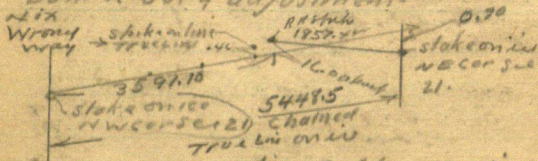 adjustment
Nix
Wrong
Way
stake on line
True line .46
RR Stake
1857.45
0.70
stake on line
NE Cor Sec
21.
3591.10
stake on ice
NW Cor Sec 21
5448.5
Chained
True Line on ice